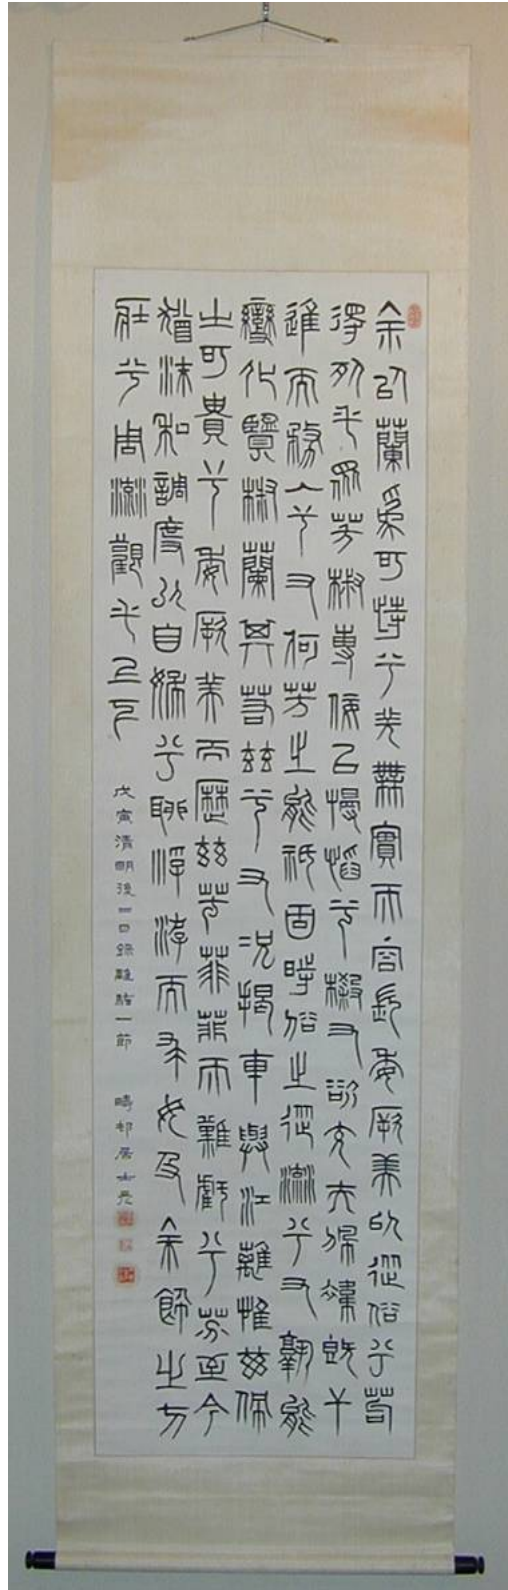 余以蘭為可恃兮羌無實而容長委厥美以從俗兮苟
得列乎眾芳椒專佞以慢慆兮樧又欲充夫佩幃既干
進而務入兮又何芳之能祗固時俗之從流兮又孰能
變化覽椒蘭其若茲兮又況揭車與江離惟茲佩
之可貴兮委厥美而歷茲芳菲菲而難虧兮芬至今
猶沬和調度以自娛兮聊浮游而求女及余飾之方
壯兮周流觀乎上下
戊寅清明後二日錄離騷一節 疇邨居士亮